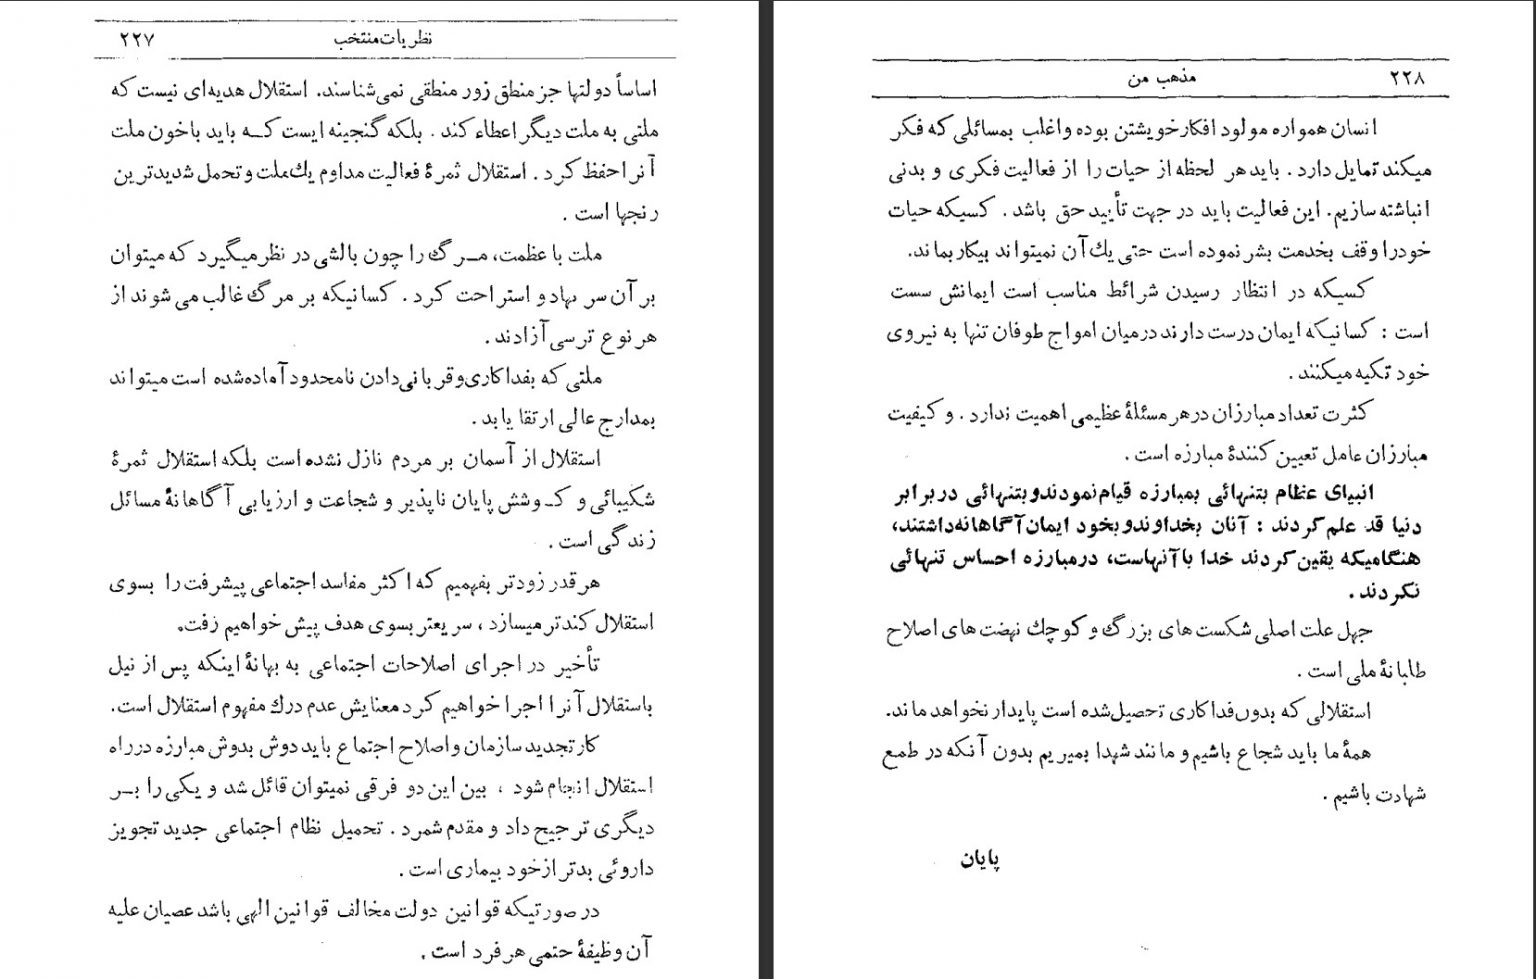 نظریات منتخب ۲۲۷
اساساً دولتها جز منطق زور منطقی نمی‌شناسند. استقلال هدیه‌ای نیست که
ملتی به ملت دیگر اعطاء کند. بلکه گنجینه ایست کـه باید باخون ملت
آنرا حفظ کرد. استقلال ثمرهٔ فعالیت مداوم یك ملت و تحمل شدیدترین
رنجها است.
ملت با عظمت، مـرگ را چون بالشی در نظر میگیرد که میتوان
بر آن سر نهاد و استراحت کرد. کسانیکه بر مرگ غالب می‌شوند از
هر نوع ترسی آزادند.
ملتی که بفداکاری و قربانی دادن نامحدود آماده‌شده است میتواند
بمدارج عالی ارتقا یابد.
استقلال از آسمان بر مردم نازل نشده است بلکه استقلال ثمرهٔ
شکیبائی و کـوشش پایان ناپذیر و شجاعت و ارزیابی آگاهانهٔ مسائل
زندگی است.
هر قدر زودتر بفهمیم که اکثر مفاسد اجتماعی پیشرفت را بسوی
استقلال کندتر میسازد، سریعتر بسوی هدف پیش خواهیم رفت.
تأخیر در اجرای اصلاحات اجتماعی به بهانهٔ اینکه پس از نیل
باستقلال آنرا اجرا خواهیم کرد معنایش عدم درك مفهوم استقلال است.
کار تجدید سازمان و اصلاح اجتماع باید دوش بدوش مبارزه در راه
استقلال انجام شود، بین این دو فرقی نمیتوان قائل شد و یکی را بـر
دیگری ترجیح داد و مقدم شمرد. تحمیل نظام اجتماعی جدید تجویز
داروئی بدتر از خود بیماری است.
در صورتیکه قوانین دولت مخالف قوانین الهی باشد عصیان علیه
آن وظیفهٔ حتمی هر فرد است.
۲۲۸ مذهب من
انسان همواره مولود افکار خویشتن بوده و اغلب بمسائلی که فکر
میکند تمایل دارد. باید هر لحظه از حیات را از فعالیت فکری و بدنی
انباشته سازیم. این فعالیت باید در جهت تأیید حق باشد. کسیکه حیات
خودرا وقف بخدمت بشر نموده است حتی یك آن نمیتواند بیکار بماند.
کسیکه در انتظار رسیدن شرائط مناسب است ایمانش سست
است: کسانیکه ایمان درست دارند درمیان امواج طوفان تنها به نیروی
خود تکیه میکنند.
کثرت تعداد مبارزان در هر مسئلهٔ عظیمی اهمیت ندارد. و کیفیت
مبارزان عامل تعیین کنندهٔ مبارزه است.
انبیای عظام بتنهائی بمبارزه قیام نمودند و بتنهائی در برابر
دنیا قد علم کردند: آنان بخداوند و بخود ایمان آگاهانه داشتند،
هنگامیکه یقین کردند خدا با آنهاست، در مبارزه احساس تنهائی
نکردند.
جهل علت اصلی شکست های بزرگ و کوچك نهضت های اصلاح
طلبانهٔ ملی است.
استقلالی که بدون فداکاری تحصیل شده است پایدار نخواهد ماند.
همهٔ ما باید شجاع باشیم و مانند شهدا بمیریم بدون آنکه در طمع
شهادت باشیم.
پایان